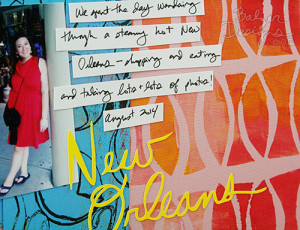 We spent the day wandering
through a steamy hot New
Orleans - shopping and eating
and taking lots + lots of photos!
August 2014
New
Orleans